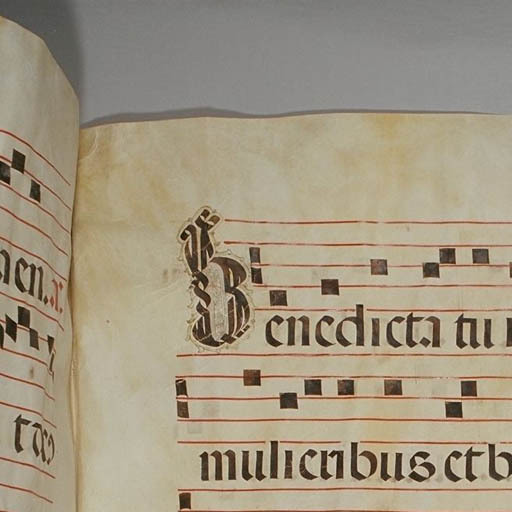 men.
tao
Benedicta tu
mulieribus et b